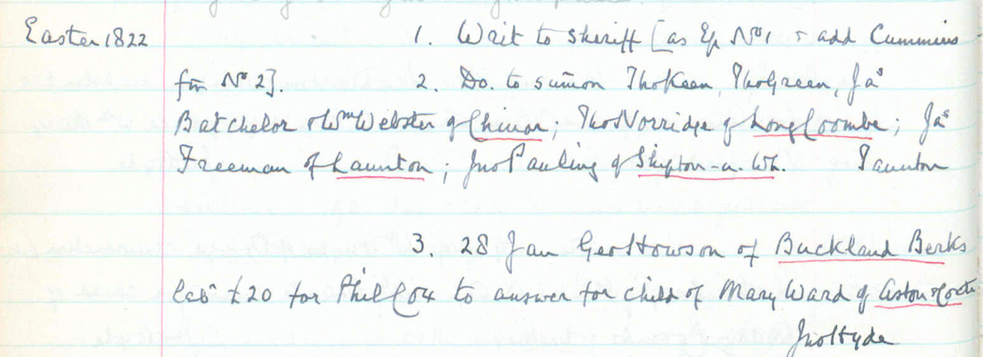 Easter 1822 1. Writ to Sheriff [as Ep. No 1 & add Cummins
for No 2]. 2. Do. to sumon Tho Keen, Tho Green, Jas
Batchelor & Wm Webster of Chinor; Thos Norridge of Long Coombe; Jas
Freeman of Launton; Jno Pauling of Shipton-u. Wh. Taunton
3. 28 Jan Geo Howson of Buckland Berks
labr £20 for Phil Cox to answer for child of Mary Ward of Aston
Jno Hyde